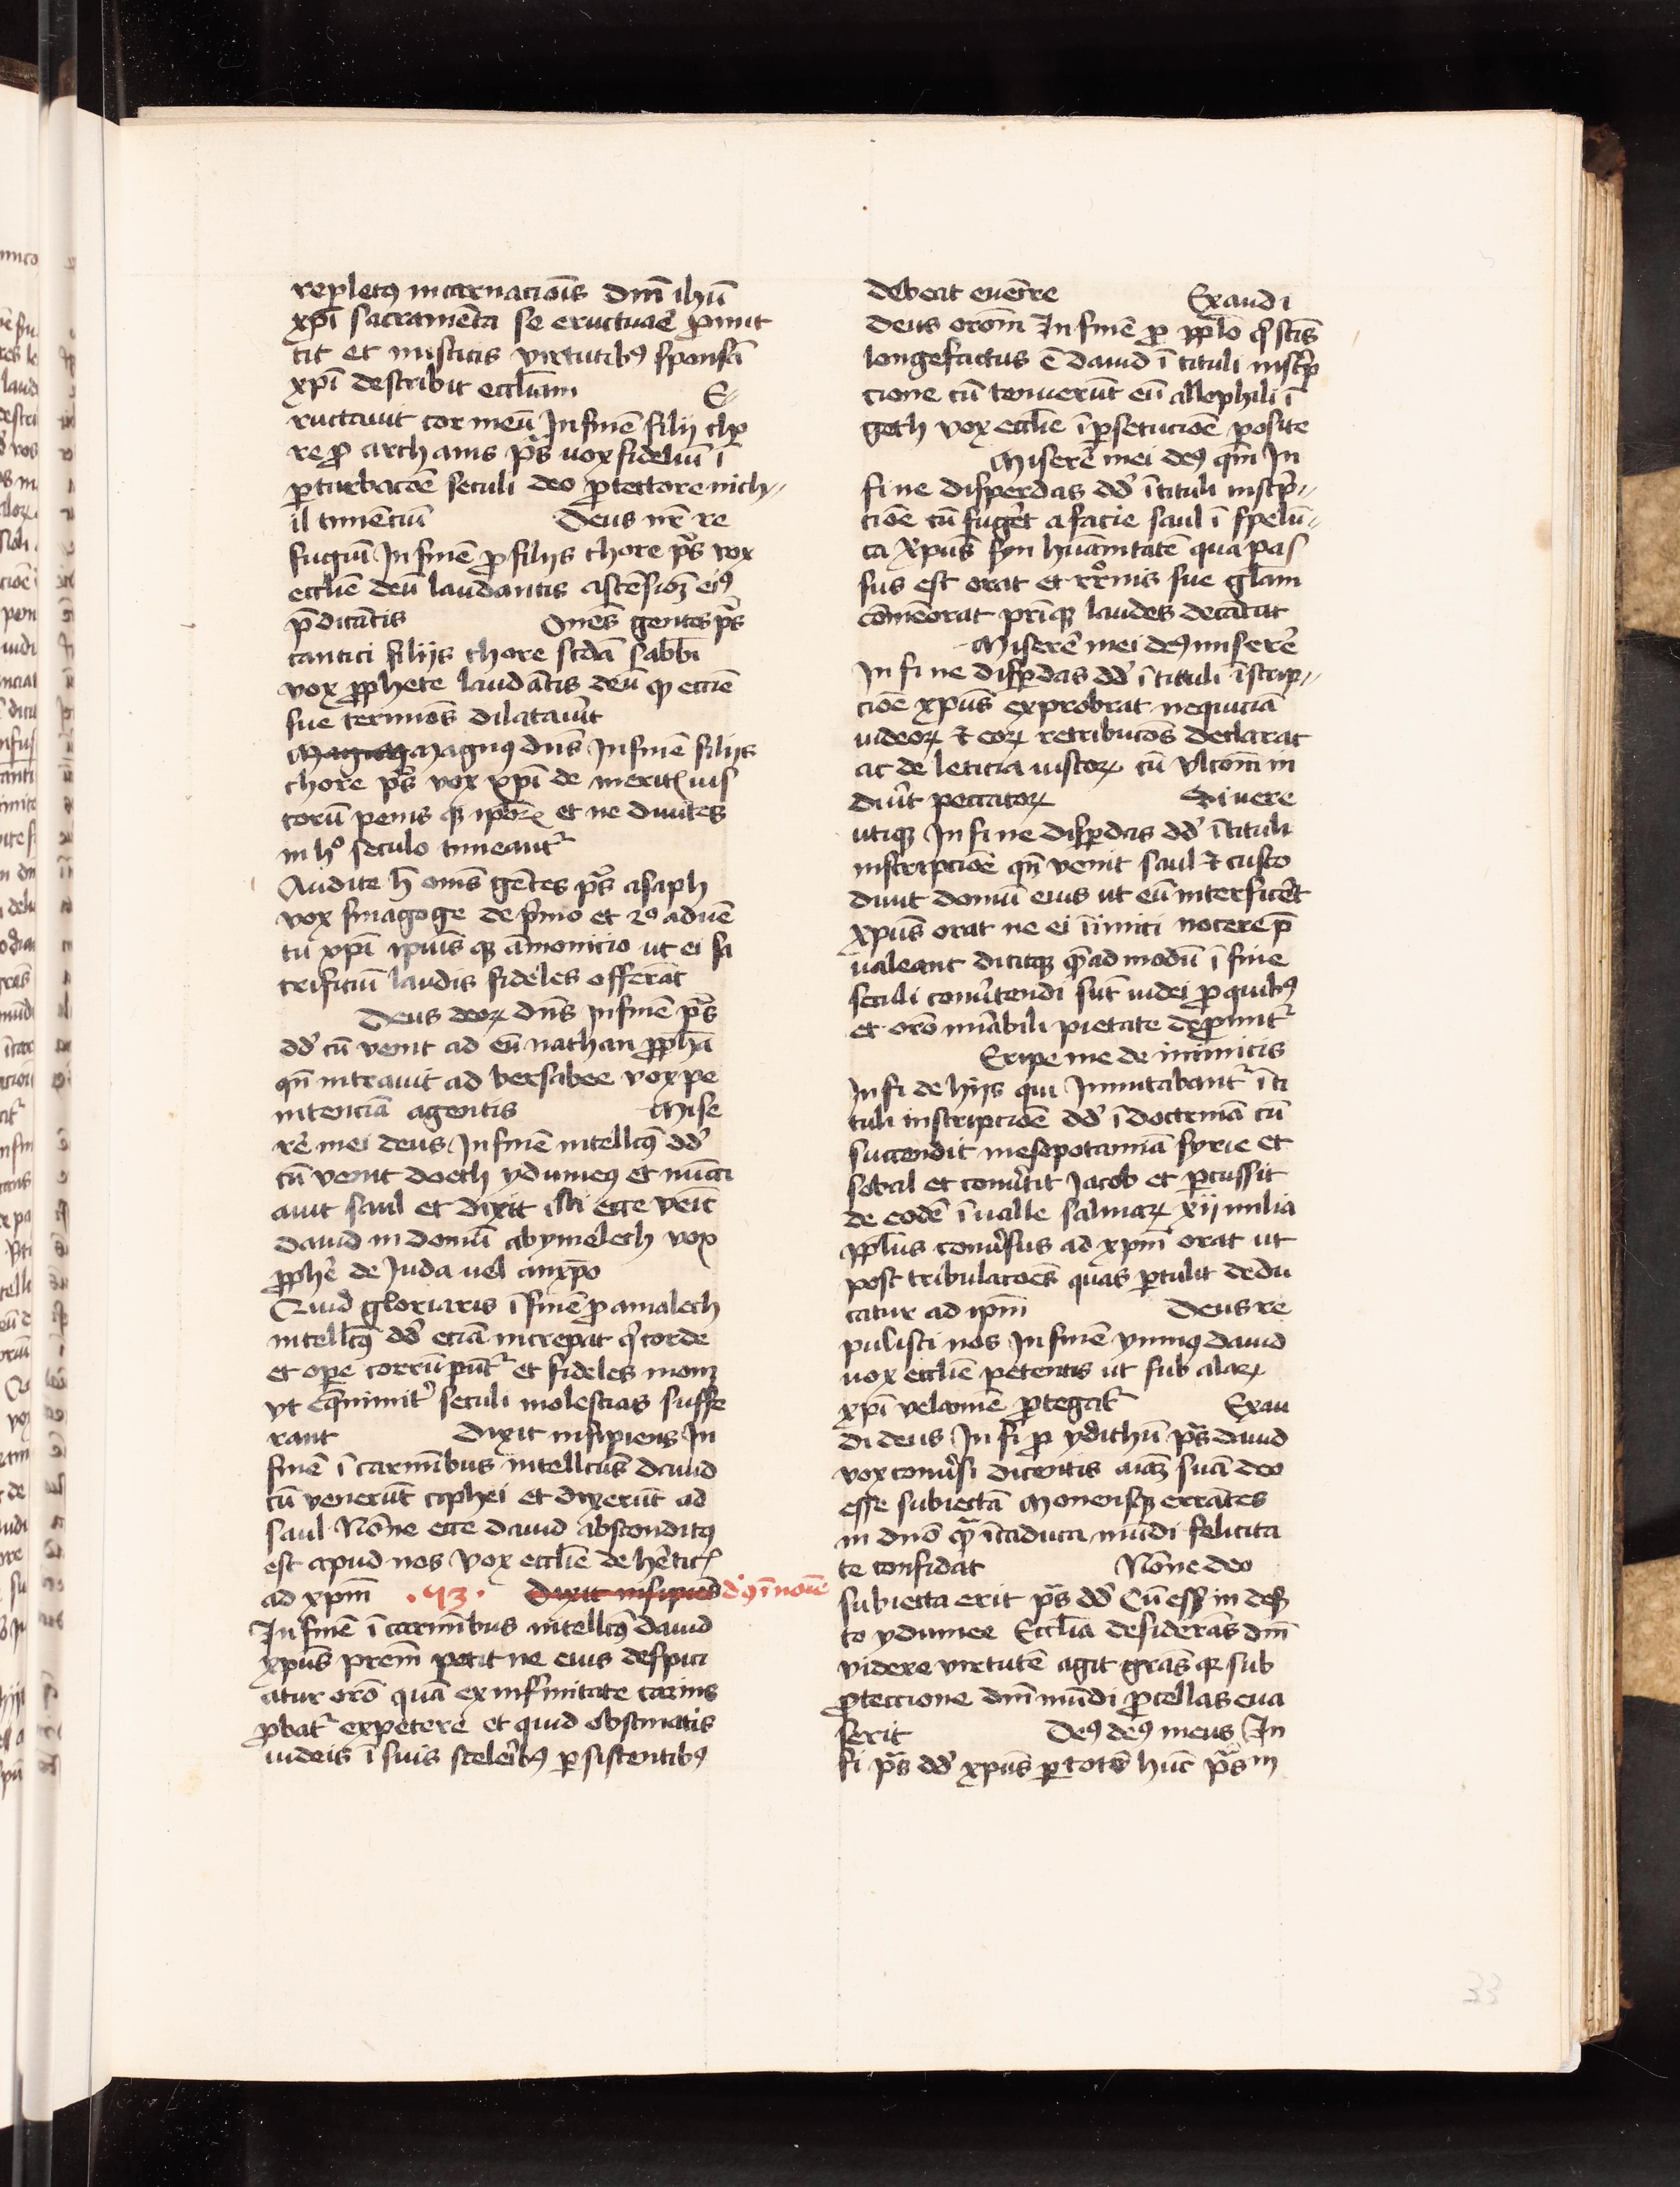 repletꝰ incarnacōis dnī ihū
xpī sacramēta se eructuaē ꝓmit
tit et misticis virtutibꝰ sponsā
xpī describit ecclīam E-
ructauit cor meū In finē filij cho
re ꝓ archanis pṡ uox fideliū ī
ꝑturbacōe seculi deo ꝓtectore nich-
il timēciū Deus nr̄ re
fugiū In finē ꝓ filijs chore pṡ vox
ecclīe deū laudantis ascēsiōȝ eiꝰ
p̄dicātis Om̄es gentes pṡ
cantici filijs chore scdā sabbī
vox ꝓphete laudātis deū qꝫ eccīe
sue termiōs dilatauīt
Magnꝰ Magnꝰ dn̄s In finē filijs
chore pṡ vox xpī de meritꝭ ius
torū penis qꝫ ipīoꝝ et ne diuites
in hº seculo timeantᷣ
Audite h̄ om̄s gētes pṡ asaph
vox sinagoge de pͥmo et 2º aduē
tu xpī ipiuis qꝫ āmonicio ut ei sa
crificiū laudis fideles offerāt
Deus deoꝝ dn̄s In finē pṡ
dd̄ cū venit ad eū nathan ꝓpha
qn̄ intrauit ad bersabee vox pe
intenciā agentis Mise
rē mei deus In finē intellcꝰ dd̄
cū venit doeth ydumeꝰ et nūci
auit saul et dixit illi ecce veīt
dauid in domū abymelech vox
ꝓphē de Juda uel anxpō
Quid gloriaris ī finē ꝓ amalech
intellcꝰ dd̄ eciā increpat qͥ corde
et oꝑe corrūpūtᷣ et fideles monȝ
vt eqͣnimitᷣ seculi molestias suffe
rant Dixit insipiens In
finē ī carmībus intellcūs dauid
cū venerūt ciphei et dixerūt ad
saul Nōne ecce dauid absconditꝰ
est apud nos Vox ecclīe de hētic
ad xpm̄ .43. Dixit insipiēs dꝰ ī noīe
In finē ī carmībus intellcꝰ dauid
xpūs prem̄ petit ne eius despici
atur orō quā ex infirmitate carnis
ꝓbatᷣ expetere et quid obstinatis
iudeis ī suis scelerībꝰ ꝑsistentibꝰ
debeat euenīre Exaudi
deus orōm̄ In finē ꝓ ppl̄o qͥ scīs
longefactus ē dauid ī tituli inscͥp
cione cū tenuerūt eū allophili ī
geth vox ecclīe ī ꝑsecucōe posite
Miserē mei deꝰ qm̄ In
fine disperdas dd̄ ī tituli inscͥp-
cōe cū fugēt a facie saul ī spelū-
ca Xpūs syn hūanitatē qua pas
sus est orat et rr̄onis sue gl̄am
cōmēorat prīqꝫ laudes decātat
Miserē mei deꝰ miserē
In fine disꝑdas dd̄ ī tituli īscrip-
cōe xpūs exprobrat nequiciā
iudeoꝝ et eoꝝ retribucōs declarat
ac de leticia iustoꝝ cū vlcōm̄ in
diūt peccatoꝝ Si uere
utiqꝫ In fine disꝑdas dd̄ ī tituli
inscripcōe qn̄ venit saul et custo
diuit domū eius ut eū interficēt
xpūs orat ne ei īimici nocere p̄
ualeant dicitqꝫ quē ad modū ī fine
seculi conūtendi sūt iudei ꝓ quibꝰ
et orō mīrabili pietate dep̄mitᷣ
Eripe me de inimicis
In fi de hijs qui Inmutabantᷣ ī ti
tuli inscripcōe dd̄ ī doctrinā cū
succendit mesopotamiā syrie et
sobal et conūtit Jacob et ꝑcussit
de eodē ī ualle salinaꝝ xij milia
ppl̄us conūsus ad xpm̄ orat ut
post tribulacōes quas ꝑtulit dedu
catur ad ipm̄ Deus re
pulisti nos In finē ymnꝰ dauid
uox ecclīe petentis ut sub alaꝝ
xpī velamē ꝓtegatᷣ Exau
di deus In fi ꝓ ydithū pṡ dauid
vox conūsi dicentis aīaȝ suā deo
esse subiectā Monensqꝫ errātes
in dn̄o qͣ ī caduca mūdi felicita
te confidāt Nōne deo
subiecta erit pṡ dd̄ Cū essꝫ in deser
to ydumee Ecclīa desiderās dn̄m
videre virtutē agit gr̄as qꝫ sub
ꝓteccione dnī mūdi ꝓcellas eua
serit Deꝰ deꝰ meus In
fi pṡ dd̄ xpūs ꝑ totū hūc pṡ m
33